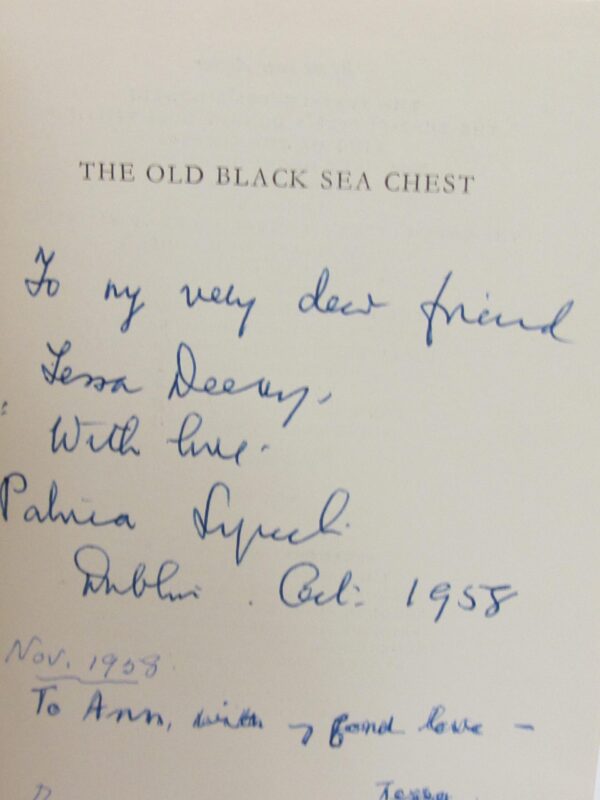 THE OLD BLACK SEA CHEST
To my very dear friend
Tessa Deevy,
With love.
Patricia Lynch.
Dublin. Oct: 1958
Nov. 1958.
To Ann, with my fond love –
Tessa